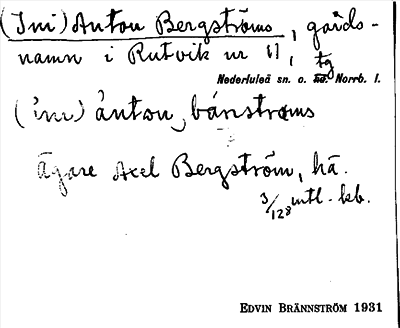 (Ini) Anton Bergströms, gårds-
namn i Rutvik nr 11, tg
Nederluleå sn. o. hd. Norrb. l.
(ini) ànton bánstroms
Ägare Axel Bergström, hä.
3/128 mtl. kb.
EDVIN BRÄNNSTRÖM 1931